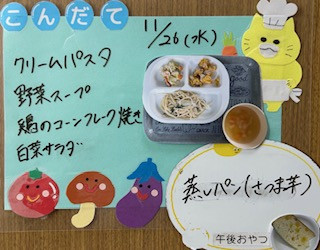 こんだて
11/26(水)
クリームパスタ
野菜スープ
鶏のコーンフレーク焼き
白菜サラダ
蒸しパン(さつま芋)
午後おやつ